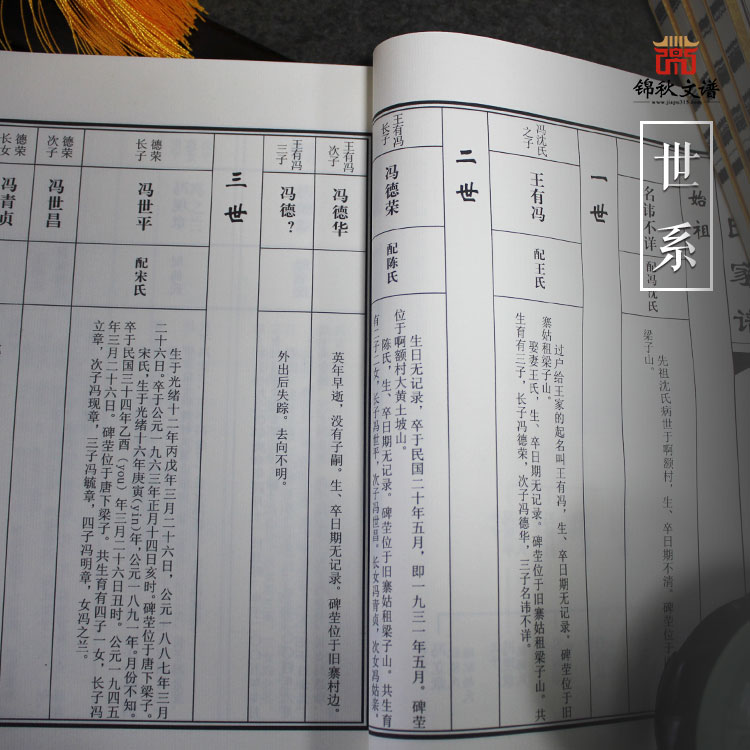 锦秋文谱
www.jiapu315.com
世系
家谱
始祖
名讳不详
配冯沈氏
先祖沈氏病世于啊额村，生、卒日期不清，碑茔位于
梁子山。
一世
冯沈氏
之子
王有冯
配王氏
过户给王家的起名叫王有冯，生、卒日期无记录，碑茔位于旧
寨姑祖梁子山。
娶妻王氏，生、卒日期无记录。碑茔位于旧寨姑祖梁子山。共
生育有三子，长子冯德荣，次子冯德华，三子名讳不详。
二世
王有冯
长子
冯德荣
配陈氏
生日无记录，卒于民国二十年五月，即一九三一年五月。碑茔
位于啊额村大黄土坡山。
陈氏，生、卒日期无记录。碑茔位于旧寨姑祖梁子山。共生育
有二子二女，长子冯世平，次子冯世昌，长女冯青贞，次女冯姑亲。
王有冯
次子
冯德华
英年早逝，没有子嗣。生、卒日期无记录。碑茔位于旧寨村边。
王有冯
三子
冯德？
外出后失踪。去向不明。
三世
德荣
长子
冯世平
配宋氏
生于光绪十二年丙戊年三月二十六日，公元一八八七年三月
二十六日。卒于公元一九六三年正月十四日亥时。碑茔位于唐下梁子。
宋氏，生于光绪十六年庚寅(yin)年，公元一八九一年。月份不知。
卒于民国三十四年乙酉（you）年三月二十六日丑时。公元一九四五
年三月二十六日。碑茔位于唐下梁子。共生育有四子一女，长子冯
立章，次子冯现章，三子冯毓章，四子冯明章，女冯之兰。
德荣
次子
冯世昌
德荣
长女
冯青贞